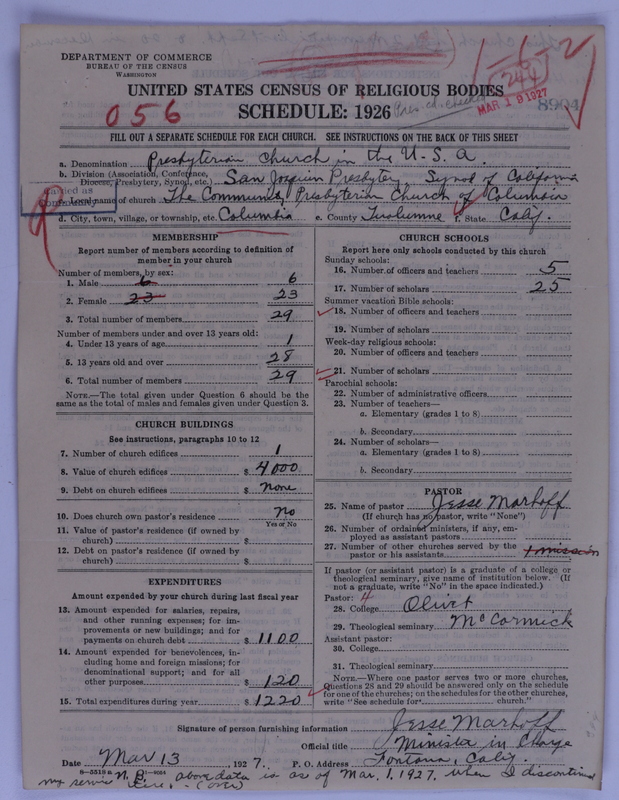 DEPARTMENT OF COMMERCE
BUREAU OF THE CENSUS
WASHINGTON
UNITED STATES CENSUS OF RELIGIOUS BODIES
SCHEDULE: 1926
056
244
MAR 19 1927
8904
Pres. ch. checked
FILL OUT A SEPARATE SCHEDULE FOR EACH CHURCH. SEE INSTRUCTIONS ON THE BACK OF THIS SHEET
a. Denomination Presbyterian Church in the U.S.A.
b. Division (Association, Conference,
Diocese, Presbytery, Synod, etc.) San Joaquin Presbytery Synod of California
c. Local name of church The Community Presbyterian Church of Columbia
d. City, town, village, or township, etc. Columbia e. County Tuolumne f. State Calif.
MEMBERSHIP
Report number of members according to definition of
member in your church
Number of members, by sex:
1. Male 6 6
2. Female 23 23
3. Total number of members 29
Number of members under and over 13 years old:
4. Under 13 years of age 1
5. 13 years old and over 28
6. Total number of members 29
NOTE.—The total given under Question 6 should be the
same as the total of males and females given under Question 3.
CHURCH BUILDINGS
See instructions, paragraphs 10 to 12
7. Number of church edifices 1
8. Value of church edifices $ 4000
9. Debt on church edifices $ none
10. Does church own pastor's residence no
Yes or No
11. Value of pastor's residence (if owned by
church) $
12. Debt on pastor's residence (if owned by
church) $
EXPENDITURES
Amount expended by your church during last fiscal year
13. Amount expended for salaries, repairs,
and other running expenses; for im-
provements or new buildings; and for
payments on church debt $ 1100
14. Amount expended for benevolences, in-
cluding home and foreign missions; for
denominational support; and for all
other purposes $ 120
15. Total expenditures during year $ 1220
CHURCH SCHOOLS
Report here only schools conducted by this church
Sunday schools:
16. Number of officers and teachers 5
17. Number of scholars 25
Summer vacation Bible schools:
18. Number of officers and teachers
19. Number of scholars
Week-day religious schools:
20. Number of officers and teachers
21. Number of scholars
Parochial schools:
22. Number of administrative officers
23. Number of teachers—
a. Elementary (grades 1 to 8)
b. Secondary
24. Number of scholars—
a. Elementary (grades 1 to 8)
b. Secondary
PASTOR
25. Name of pastor Jesse Marhoff
(If church has no pastor, write "None")
26. Number of ordained ministers, if any, em-
ployed as assistant pastors
27. Number of other churches served by the
pastor or his assistants 1 mission
If pastor (or assistant pastor) is a graduate of a college or
theological seminary, give name of institution below. (If
not a graduate, write "No" in the space indicated.)
Pastor: 4
28. College Olivet
29. Theological seminary McCormick
Assistant pastor:
30. College
31. Theological seminary
NOTE.—Where one pastor serves two or more churches,
Questions 28 and 29 should be answered only on the schedule
for one of the churches; on the schedules for the other churches,
write "See schedule for church."
Signature of person furnishing information Jesse Marhoff
Official title Minister in Charge
Date Mar 13 1927. P. O. Address Fontana, Calif.
N.B. above data is as of Mar. 1, 1927, when I discontinued
my service here. (over)